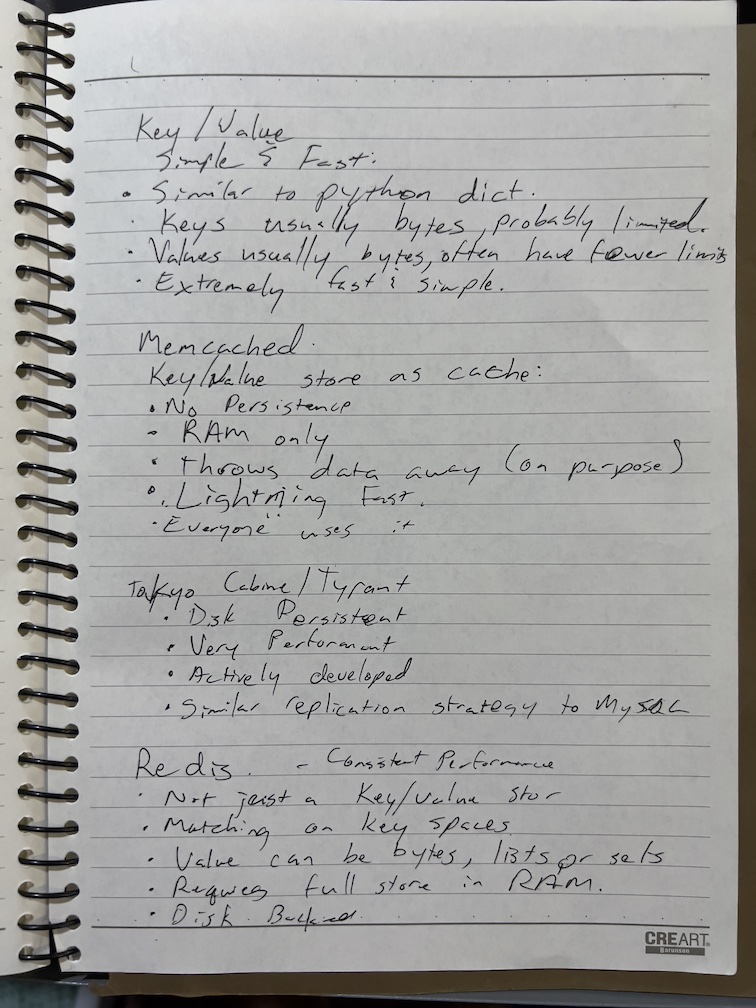 Key/Value
Simple & Fast:
• Similar to python dict.
• Keys usually bytes, probably limited.
• Values usually bytes, often have fewer limits
• Extremely fast & simple.
Memcached.
Key/Value store as cache:
• No Persistence
- RAM only
• Throws data away (on purpose)
• Lightning Fast.
• Everyone uses it
Tokyo Cabine/Tyrant
• Disk Persistent
• Very Performant
• Actively developed
• Similar replication strategy to MySQL
Redis. - Consistent Performance
• Not just a Key/Value stor
• Matching on key spaces
• Value can be bytes, lists or sets
• Requires full store in RAM.
• Disk Backed.
CREART
Barunson